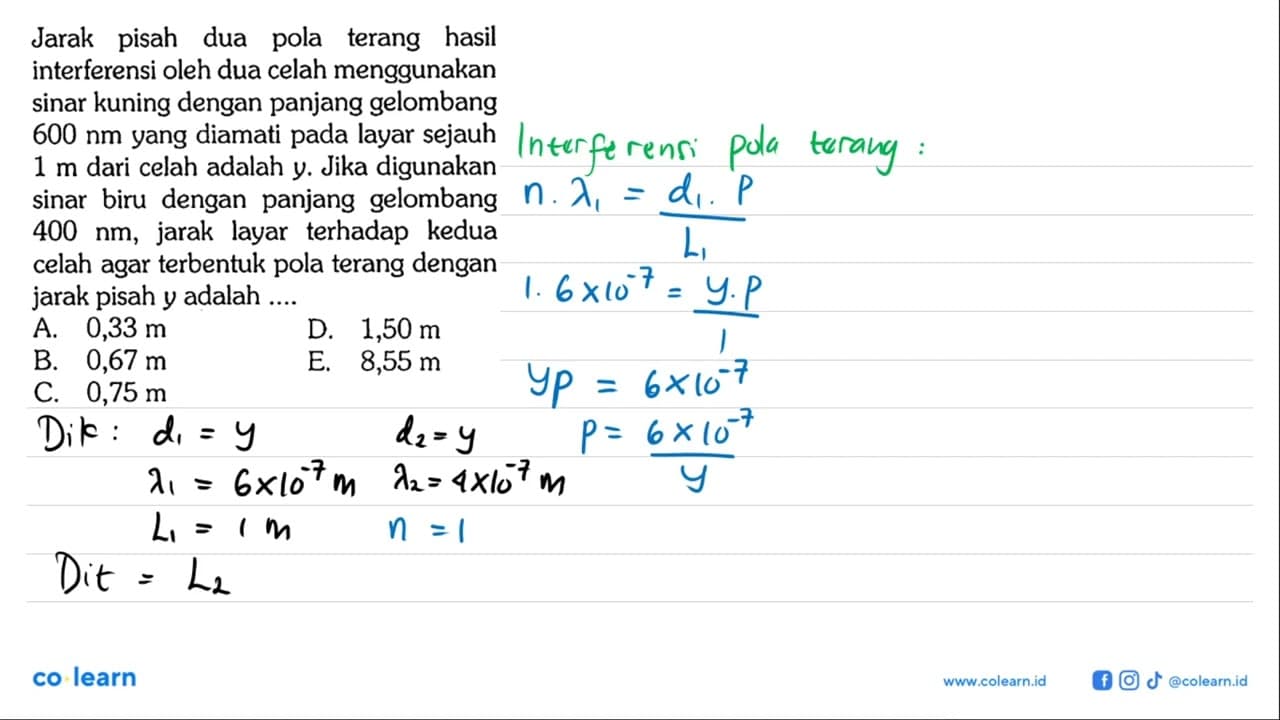 Jarak pisah dua pola terang hasil
interferensi oleh dua celah menggunakan
sinar kuning dengan panjang gelombang
600 nm yang diamati pada layar sejauh
1 m dari celah adalah y. Jika digunakan
sinar biru dengan panjang gelombang
400 nm, jarak layar terhadap kedua
celah agar terbentuk pola terang dengan
jarak pisah y adalah ....
A. 0,33 m D. 1,50 m
B. 0,67 m E. 8,55 m
C. 0,75 m
Dik : d₁ = y d₂ = y
λ₁ = 6×10⁻⁷ m λ₂ = 4×10⁻⁷ m
L₁ = 1 m n = 1
Dit = L₂
Interferensi pola terang :
n . λ₁ = d₁ . p
L₁
1 . 6×10⁻⁷ = y . p
1
yp = 6×10⁻⁷
p = 6×10⁻⁷
y
co learn
www.colearn.id @colearn.id